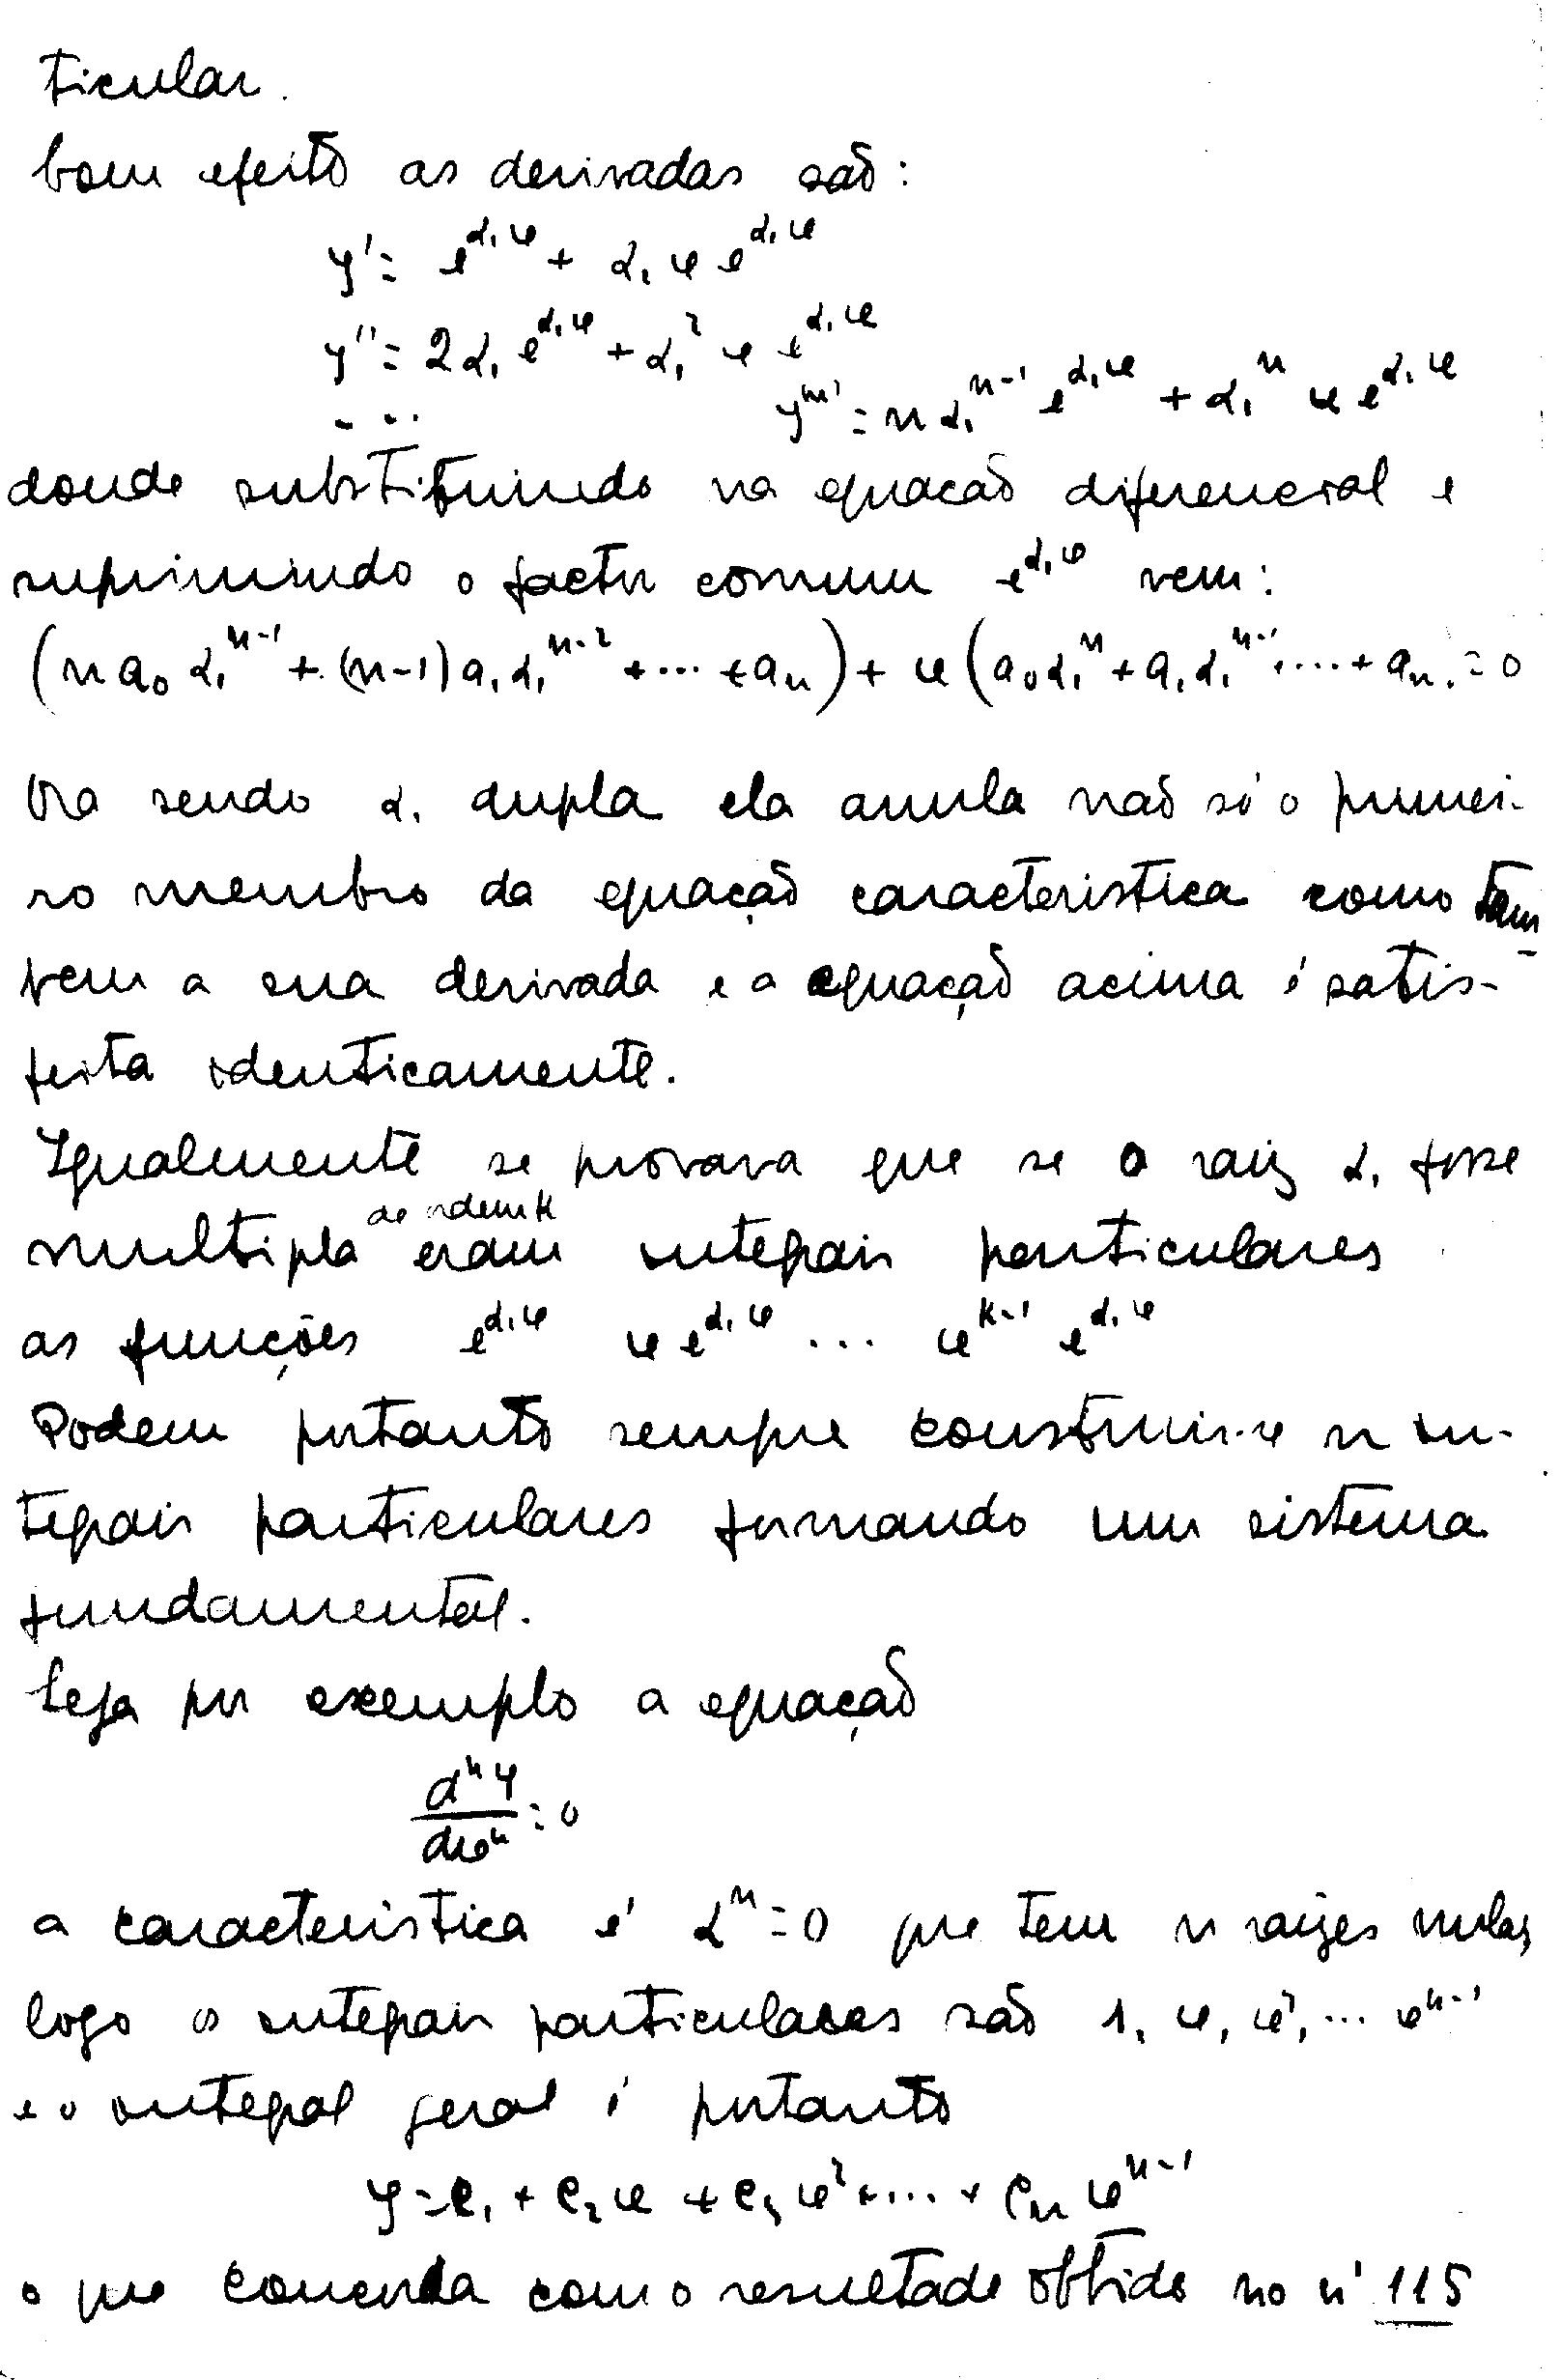 ticular.
Com efeito as derivadas são:
y' = e^{α₁x} + α₁ x e^{α₁x}
y'' = 2α₁ e^{α₁x} + α₁² x e^{α₁x}
.... y^{(n)} = n α₁^{n-1} e^{α₁x} + α₁^n x e^{α₁x}
donde substituindo na equacaõ diferencial e
suprimindo o factor comum e^{α₁x} vem:
(n a₀ α₁^{n-1} + (n-1) a₁ α₁^{n-2} + ... + aₙ) + x (a₀ α₁^n + a₁ α₁^{n-1} + ... + aₙ) = 0
Ora sendo α₁ dupla ela anula naõ só o primei-
ro membro da equaçaõ caracteristica como tam-
bem a sua derivada e a equaçaõ acima é satis-
feita identicamente.
Igualmente se provava que se a raiz α₁ fosse
multipla de ordem k eram integrais particulares
as funções e^{α₁x} x e^{α₁x} ... x^{k-1} e^{α₁x}
Podem portanto sempre construir-se n in-
tegrais particulares formando um sistema
fundamental.
Seja por exemplo a equaçaõ
dⁿy/dxⁿ = 0
a caracteristica é αⁿ = 0 que tem n raizes nulas,
logo os integrais particulares saõ 1, x, x², ... x^{n-1}
e o integral geral é portanto
y = C₁ + C₂ x + C₃ x² + ... + Cₙ x^{n-1}
o que concorda com o resultado obtido no nº 115